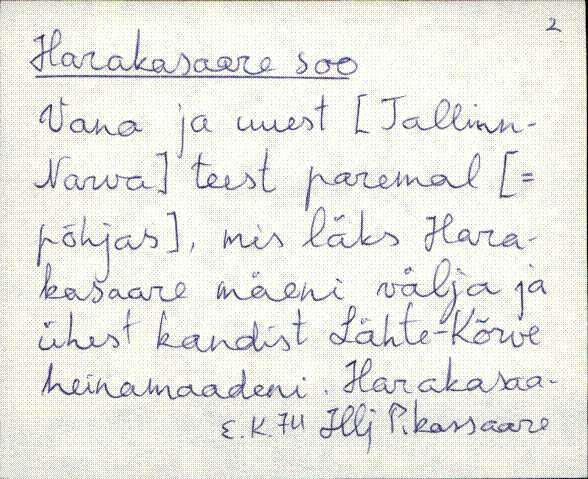 2
Harakasaare soo
Vana ja uuest [Tallinn-
Narva] teest paremal [=
põhjas], mis läks Hara-
kasaare mäeni välja ja
ühest kandist Lähte-Kõrve
heinamaadeni. Harakasaa-
E.K. 74 Illj P.kassaare